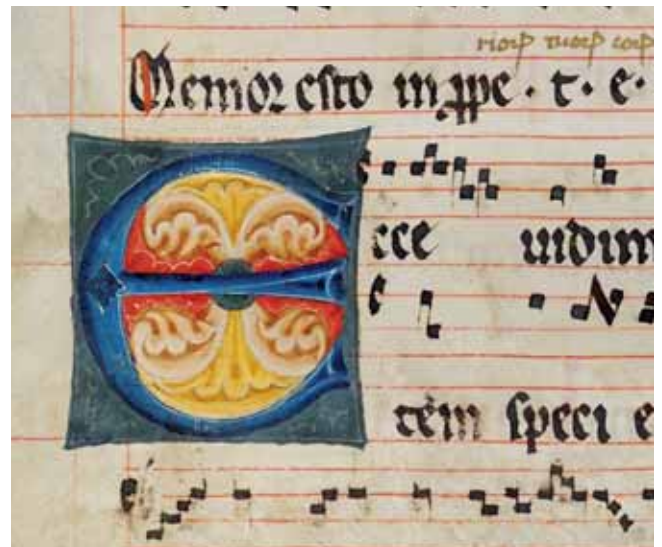 Memor esto inppe · t · e ·
Ecce uidim
tem speci e